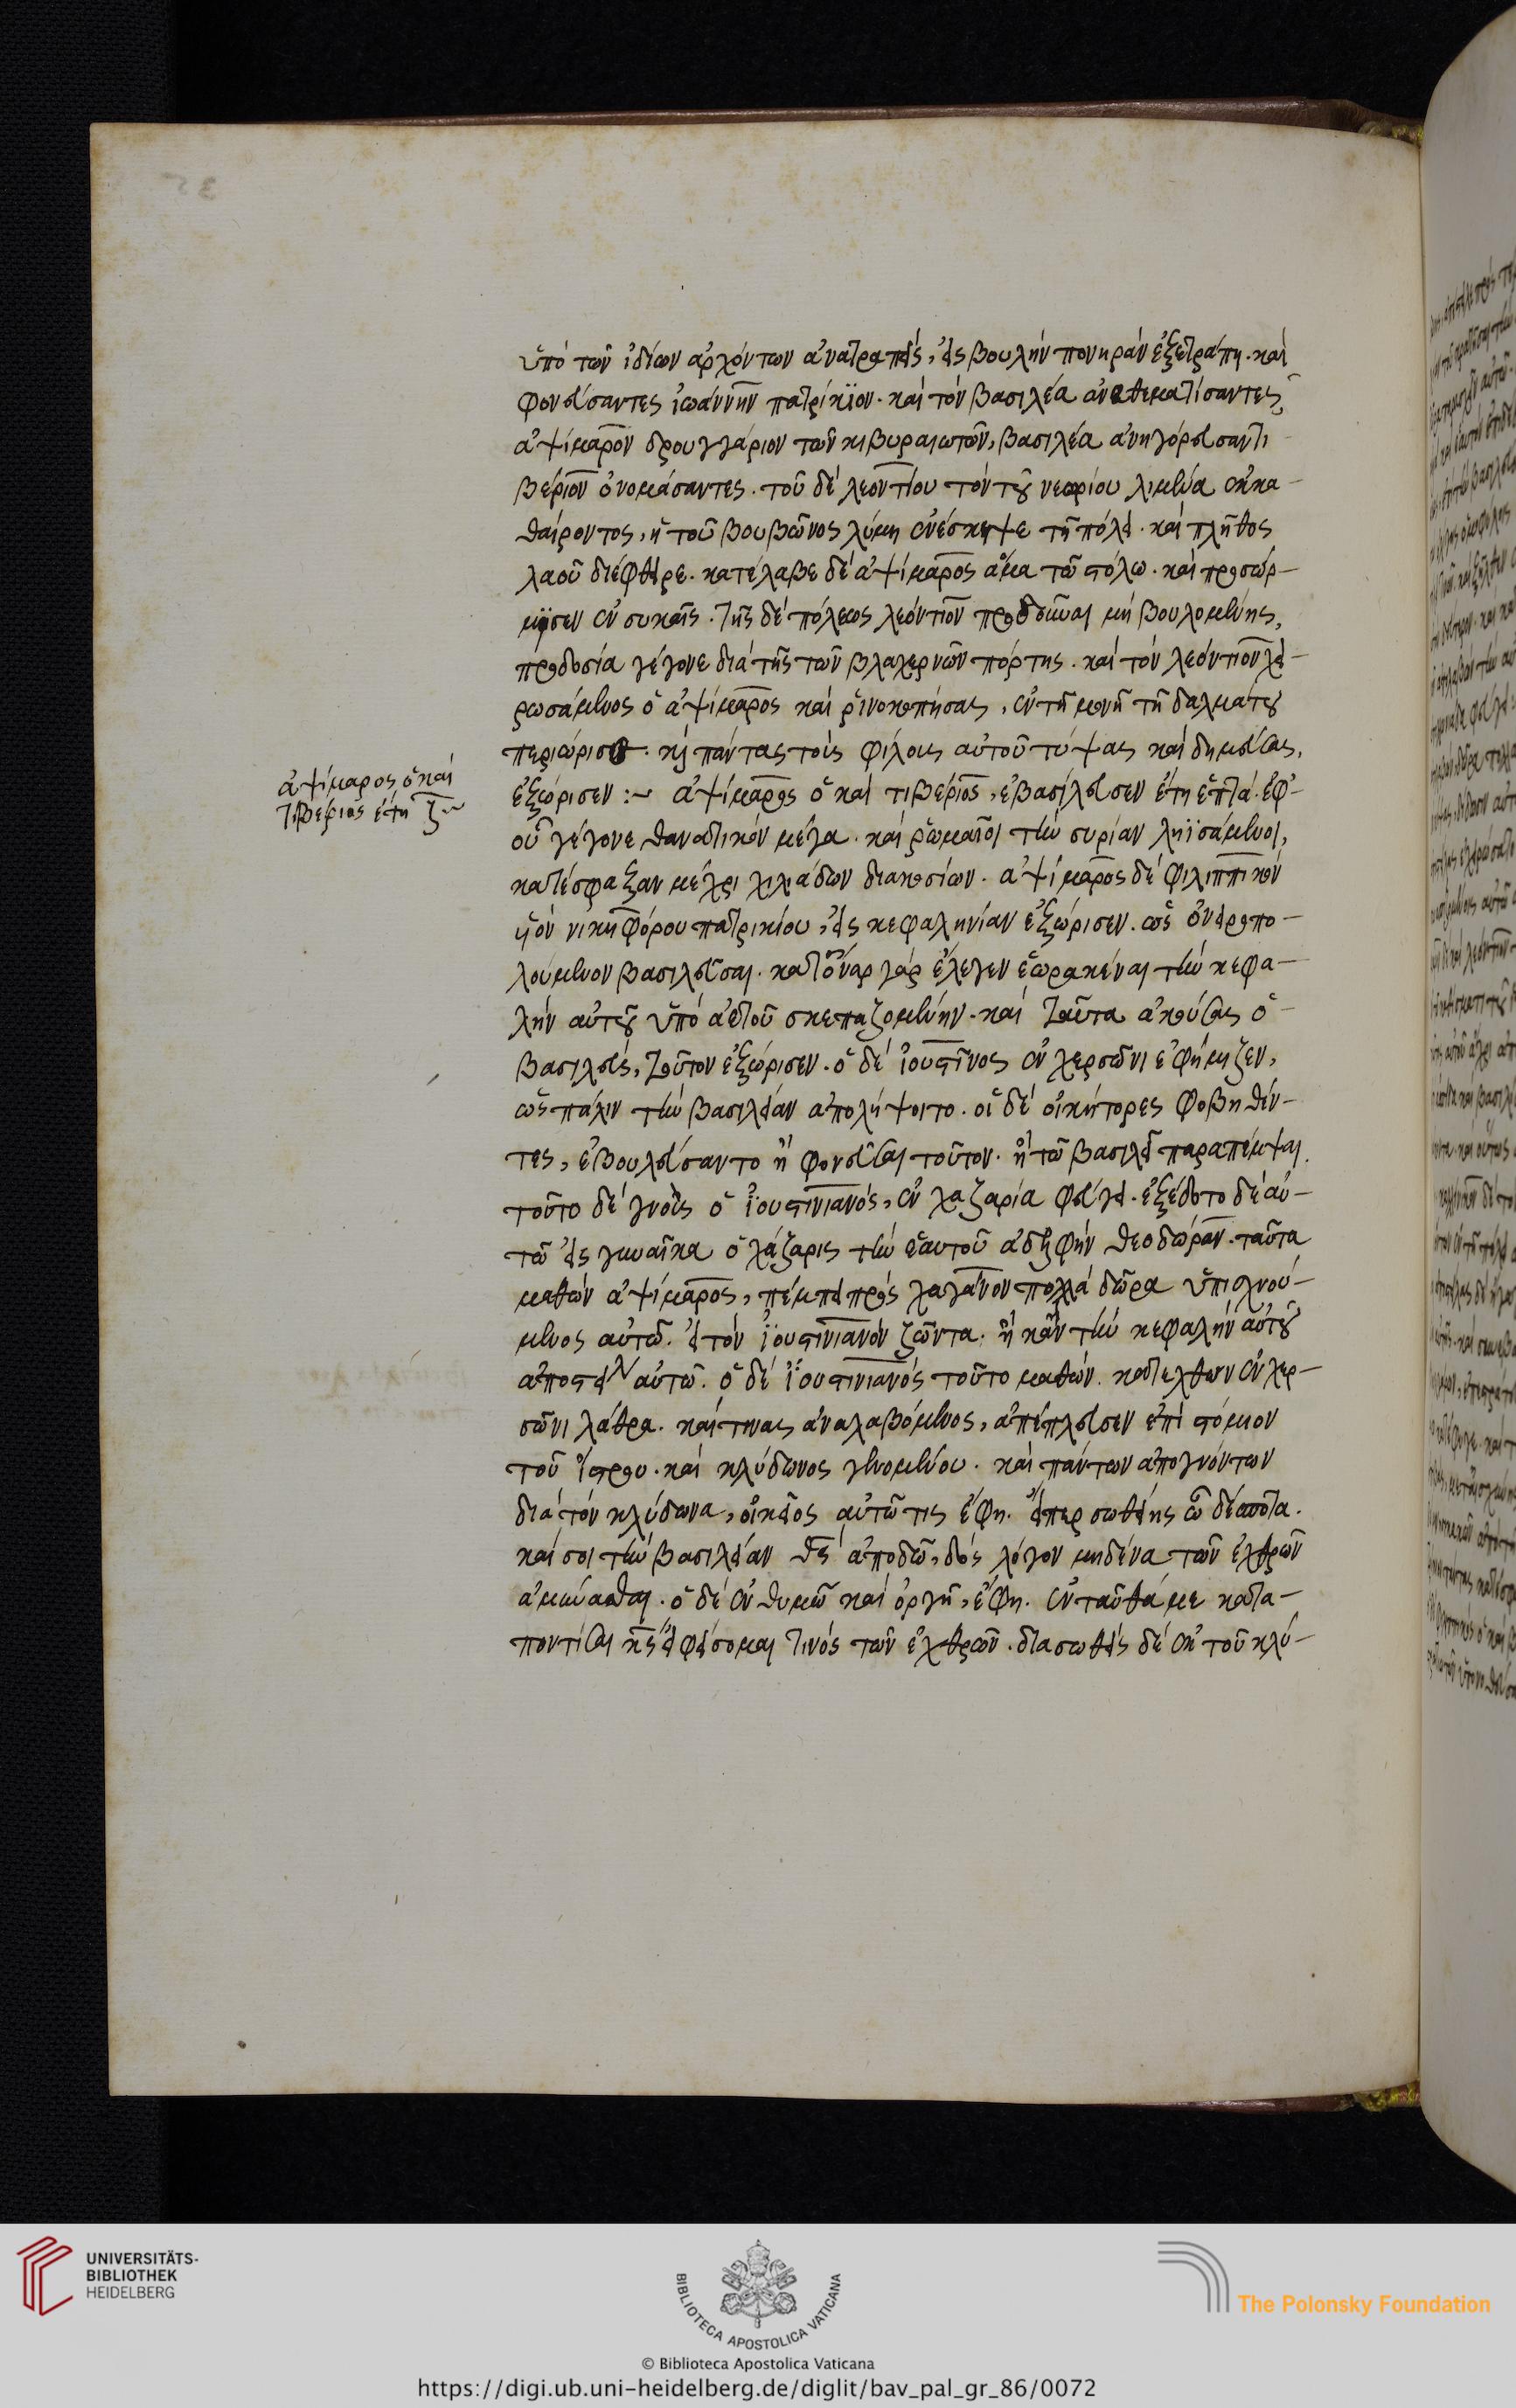 ὑπὸ τῶν ἰδίων ἀρχόντων ἀνατραπεὶς, εἰς βουλὴν πονηρὰν ἐξετράπη. καὶ
φονεύσαντες ἰωάννην πατρίκϊον. καὶ τὸν βασιλέα ἀναθεματίσαντες,
ἀψίμαρον δρουγγάριον τῶν κιβυραιωτῶν, βασιλέα ἀνηγόρευσαν τι-
βέριον ὀνομάσαντες. τοῦ δὲ λεοντίου τὸν τοῦ νεωρίου λιμένα ἐκκα-
θαίροντος, ἡ τοῦ βουβῶνος λύμη ἐνέσκηψε τῆ πόλει. καὶ πλῆθος
λαοῦ διέφθειρε. κατέλαβε δὲ ἀψίμαρος ἅμα τῶ στόλω. καὶ προσώρ-
μησεν ἐν συκαῖς. τῆς δὲ πόλεως λεόντιον προδοῦναι μὴ βουλομένης,
προδοσία γέγονε διὰ τῆς τῶν βλαχερνῶν πόρτης. καὶ τὸν λεόντιον χει-
ρωσάμενος ὁ ἀψίμαρος καὶ ῥινοκοπήσας, ἐν τῆ μονῆ τῆ δαλμάτου
περιώρισε. καὶ πάντας τοὺς φίλους αὐτοῦ τύψας καὶ δημεύσας,
ἐξώρισεν :~ ἀψίμαρος ὁ καὶ τιβέριος, ἐβασίλευσεν ἔτη ἑπτά. ἐφ'
οὗ γέγονε θανατικὸν μέγα. καὶ ῥωμαῖοι τὴν συρίαν ληϊσάμενοι,
κατέσφαξαν μέχρι χιλιάδων διακοσίων. ἀψίμαρος δὲ φιλιππικὸν
υἱὸν νικηφόρου πατρικίου, εἰς κεφαληνίαν ἐξώρισεν. ὡς ὀνειροπο-
λούμενον βασιλεῦσαι. κατόναρ γὰρ ἔλεγεν ἑωρακέναι τὴν κεφα-
λὴν αὐτοῦ ὑπὸ ἀετοῦ σκεπαζομένην. καὶ ταῦτα ἀκούσας ὁ
βασιλεὺς, τοῦτον ἐξώρισεν. ὁ δὲ ἰουστῖνος ἐν χερσῶνι ἐφήμιζεν,
ὡς πάλιν τὴν βασιλείαν ἀπολήψοιτο. οἱ δὲ οἰκήτορες φοβηθέν-
τες, ἐβουλεύσαντο ἢ φονεῦσαι τοῦτον. ἢ τῶ βασιλεῖ παραπέμψαι.
τοῦτο δὲ γνοὺς ὁ ἰουστινιανὸς, ἐν χαζαρία φεύγει. ἐξέδοτο δὲ αὐ-
τῶ εἰς γυναῖκα ὁ χάζαρις τὴν ἑαυτοῦ ἀδελφὴν θεοδώραν. ταῦτα
μαθὼν ἀψίμαρος, πέμπει πρὸς χαγάνον πολλὰ δῶρα ὑπισχνού-
μενος αὐτῶ. εἰ τὸν ἰουστινιανὸν ζῶντα. ἢ κἂν τὴν κεφαλὴν αὐτοῦ
ἀποστείλη αὐτῶ. ὁ δὲ ἰουστινιανὸς τοῦτο μαθὼν. κατελθων ἐν χερ-
σῶνι λάθρα. καί τινας ἀναλαβόμενος, ἀπέπλευσεν ἐπὶ στόμιον
τοῦ ἴστρου. καὶ κλύδωνος γενομένου. καὶ πάντων ἀπογνόντων
διὰ τὸν κλύδωνα, οἰκεῖος αὐτῶ τις ἔφη. εἴπερ σωθείης ὦ δέσποτα.
καί σοι τὴν βασιλείαν θεὸς ἀποδῶ, δὸς λόγον μηδένα τῶν ἐχθρῶν
ἀμύνασθαι. ὁ δὲ ἐν θυμῶ καὶ ὀργῆ, ἔφη. ἐνταῦθά με κατα-
ποντίσαι κύριος εἰ φείσομαι τινὸς τῶν ἐχθρῶν. διασωθεὶς δὲ ἐκ τοῦ κλύ-
ἀψίμαρος ὁ καὶ
τιβέριος ἔτη ζ
35
UNIVERSITÄTS-
BIBLIOTHEK
HEIDELBERG
BIBLIOTECA APOSTOLICA VATICANA
The Polonsky Foundation
© Biblioteca Apostolica Vaticana
https://digi.ub.uni-heidelberg.de/diglit/bav_pal_gr_86/0072